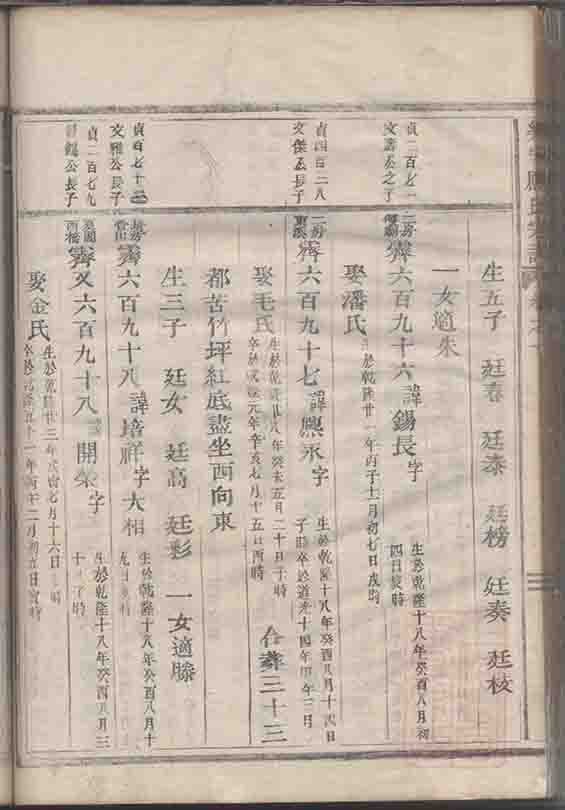 生五子 廷春 廷泰 廷榜 廷奏 廷枝
一女適朱
貞二百七一
文壽公之子
二房
霽六百九十六諱錫長字
生於乾隆十八年癸酉八月初
四日寅時
娶潘氏
生於乾隆廿一年丙子十二月初七日戌時
貞四百三八
文傑公長子
二房
霽六百九十七諱熙永字
生於乾隆十八年癸酉八月十四日
子時卒於道光十四年甲午二月
娶毛氏
生於乾隆廿八年癸未五月二十日子時
卒於咸豐元年辛亥七月十五日酉時
合葬三十三
都苦竹坪紅底盡坐西向東
生三子 廷女 廷高 廷彩 一女適滕
貞百七十三
文雅公長子
霽六百九十八諱培祥字大相
生於乾隆十八年癸酉八月十
九日
貞二百七九
公長子
西橋
霽又六百九十八諱開榮字
生於乾隆十八年癸酉八月三
十日子時
娶金氏
生於乾隆廿三年戊寅七月十六日 時
卒於乾隆五十一年丙午二月初五日寅時
氏宗譜